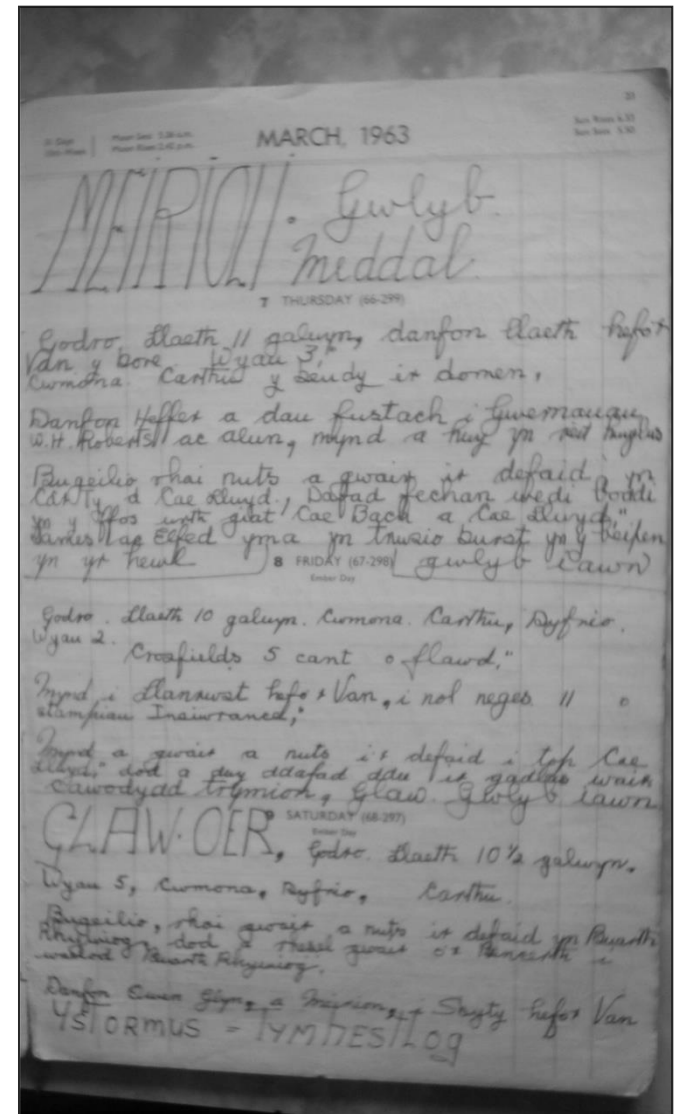 MARCH, 1963
MEIRIOLI. Gwlyb.
Meddal
7 THURSDAY (66-299)
Godro. Llaeth 11 galwyn, danfon llaeth hefo'r
Van y bore. Wyau 3,"
Cwmona. Carthu y beudy i'r domen,
Danfon Heffer a dau fustach i
W.H. Roberts ac Alun, mynd a
Bugeilio, rhoi nuts a gwair i'r defaid, yn
Cae Tŷ a Cae Llwyd., Dafad fechan wedi boddi
yn y ffos wrth giat Cae Bach a Cae Llwyd,"
James ac Elfed yma yn trwsio burst yn y beipen
yn yr hewl
8 FRIDAY (67-298)
gwlyb iawn
Ember Day
Godro. Llaeth 10 galwyn. Cwmona. Carthu, Dyfrio.
Wyau 2.
Croxfields 5 cant o flawd,"
Mynd i Llanrwst hefo'r Van, i nol neges 11 o
stampiau Insiwrance,"
Mynd a gwair a nuts i'r defaid i top Cae
Llwyd," dod a duy ddafad ddu i'r gadlas
Cawodydd trymion, Glaw. Gwlyb iawn
9 SATURDAY (68-297)
Ember Day
GLAW. OER. Godro. Llaeth 10½ galwyn.
Wyau 5, Cwmona, Dyfrio, Carthu.
Bugeilio, rhoi gwair a nuts i'r defaid yn Buarth
Rhyniog, dod a gwair o'r i
waelod Buarth Rhyniog.
Danfon Ewen Glyn, a Meirion, i hefo'r Van
YSTORMUS = TYMHESTLOG